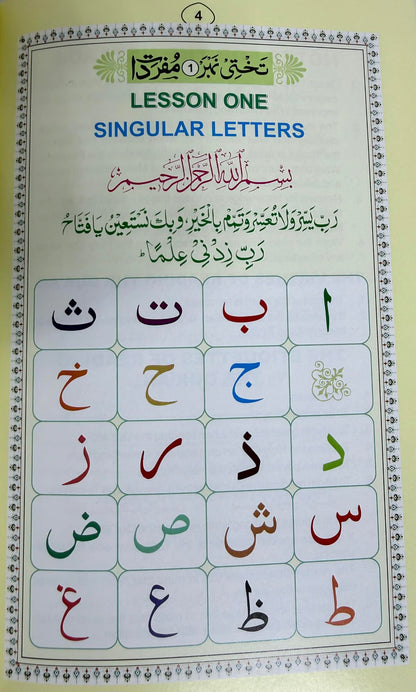 4
تختی نمبر ۱ مفردات
LESSON ONE
SINGULAR LETTERS
بِسْمِ اللهِ الرَّحْمٰنِ الرَّحِيْمِ
رَبِّ يَسِّرْ وَلَا تُعَسِّرْ وَتَمِّمْ بِالْخَيْرِ وَبِكَ نَسْتَعِيْنُ يَا فَتَّاحُ
رَبِّ زِدْنِيْ عِلْمًا ط
ا ب ت ث
ج ح خ
د ذ ر ز
س ش ص ض
ط ظ ع غ